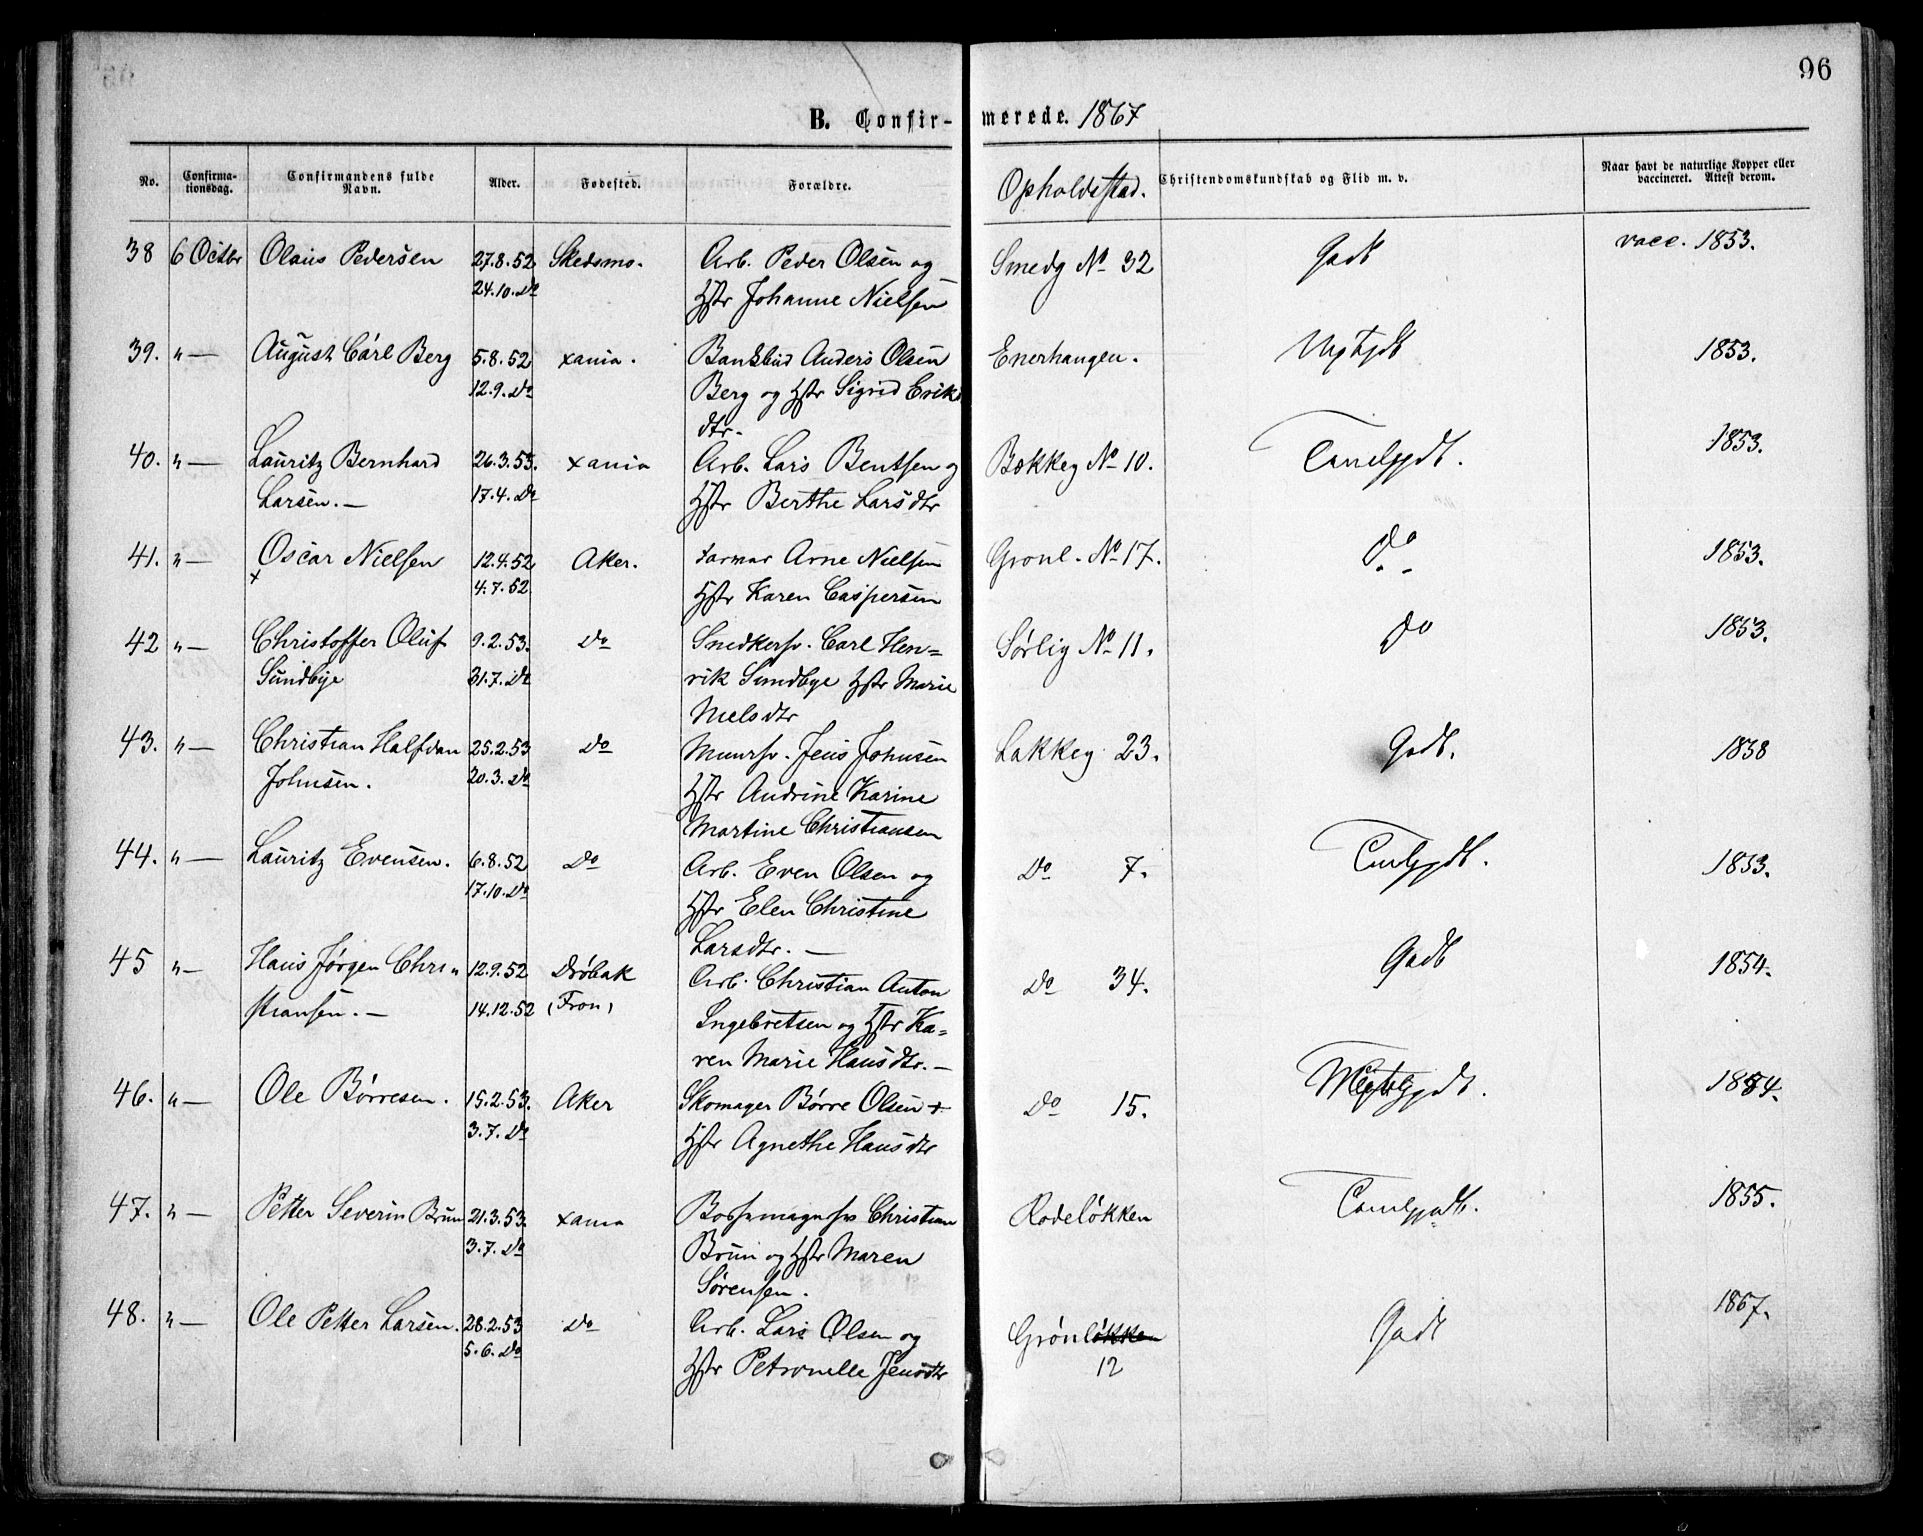 96
B. Confir- merede. 1867
No. Confirma-tionsdag. Confirmandens fulde Navn. Alder. Fødested. Forældre. Opholdssted. Christendomskundskab og Flid m. v. Naar havt de naturlige Kopper eller vaccineret. Attest derom.
38 6 Octbr Olaus Pedersen 27.8.52 Skedsmo. Arb. Peder Olsen og Smedg No 32 Godt vacc. 1853.
24.10. Do Hstr Johanne Nielsen
39. " — August Carl Berg 5.8.52 xania. Bankbud Anders Olsen Enerhaugen. 1853.
12.9. Do Berg og Hstr Sigrid Eriks
dtr.
40. " — Lauritz Bernhard 26.3.53. xania Arb. Lars Bentsen og Bækkeg No 10. 1853.
Larsen. — 17.4. Do Hstr Berthe Larsdtr
41. " — Oscar Nielsen 12.4.52 Aker. Arne Nielsen Grønl. No 17. Do 1853.
x 4.7.52. Hstr Karen Caspersen
42 " — Christoffer Oluf 9.2.53. Do Snedkersv. Carl Hen= Sørlig No 11. Do 1853.
Sundbye 31.7. Do rik Sundbye Hstr Marie
Nielsdtr
43. " — Christian Halfdan 25.2.53 Do Muursv. Jens Johnsen Lakkeg 23. Godt. 1858
Johnsen. 20.3. Do Hstr Andrine Karine
Martine Christiansen
44. " — Lauritz Evensen. 6.8.52 Do Arb. Even Olsen og Do 7. 1853.
17.10. Do Hstr Elen Christine
Larsdtr. —
45 " — Hans Jørgen Chri= 12.9.52 Drøbak Arb. Christian Anton Do 34. Godt 1854.
stiansen. — 14.12.52 (Fron) Ingebretsen og Hstr Ka=
ren Marie Hansdtr. —
46. " — Ole Børresen. 15.2.53. Aker Skomager Børre Olsen + Do 15. 1854.
3.7. Do Hstr Agnethe Hansdtr
47. " — Petter Severin Brun 21.3.53. xania Christian Rodeløkken 1855.
3.7. Do Brun og Hstr Maren
Sørensen.
48. " — Ole Petter Larsen. 28.2.53 Do Arb. Lars Olsen og Grønløkken Godt 1867.
5.6. Do Hstr Petronelle Jensdtr 12